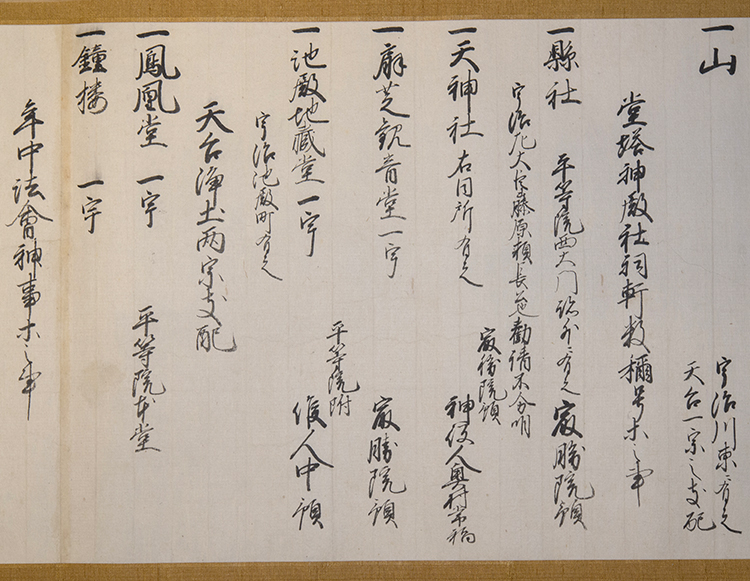 一山
宇治川東ニ有之
天台一宗之支配
堂塔神殿社祠軒数称号等之事
一縣社 平等院西大門 有之 最勝院領
宇治左大臣藤原頼長 勧請不分明
一天神社 右同所有之 神役人奥村
最勝院領
一扇芝観音堂一宇 最勝院領
平等院附
一池殿地蔵堂一宇 役人中領
宇治池殿町有之
天台浄土両宗支配
一鳳凰堂 一宇 平等院本堂
一鐘楼 一宇
年中法會神事等之事